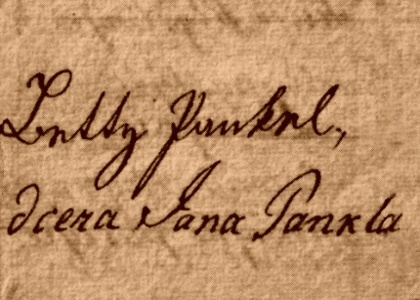 Betty Pankel,
dcera Jana Pankla